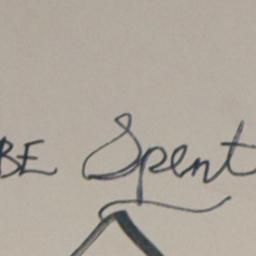 BE Spent